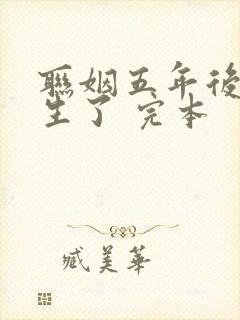 聯姻五年後
生了 完本
臧美華